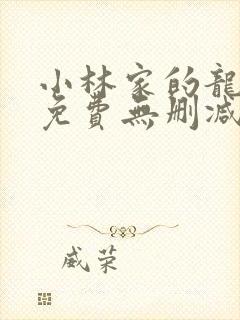 小林家的龍
免費無刪減
威荣